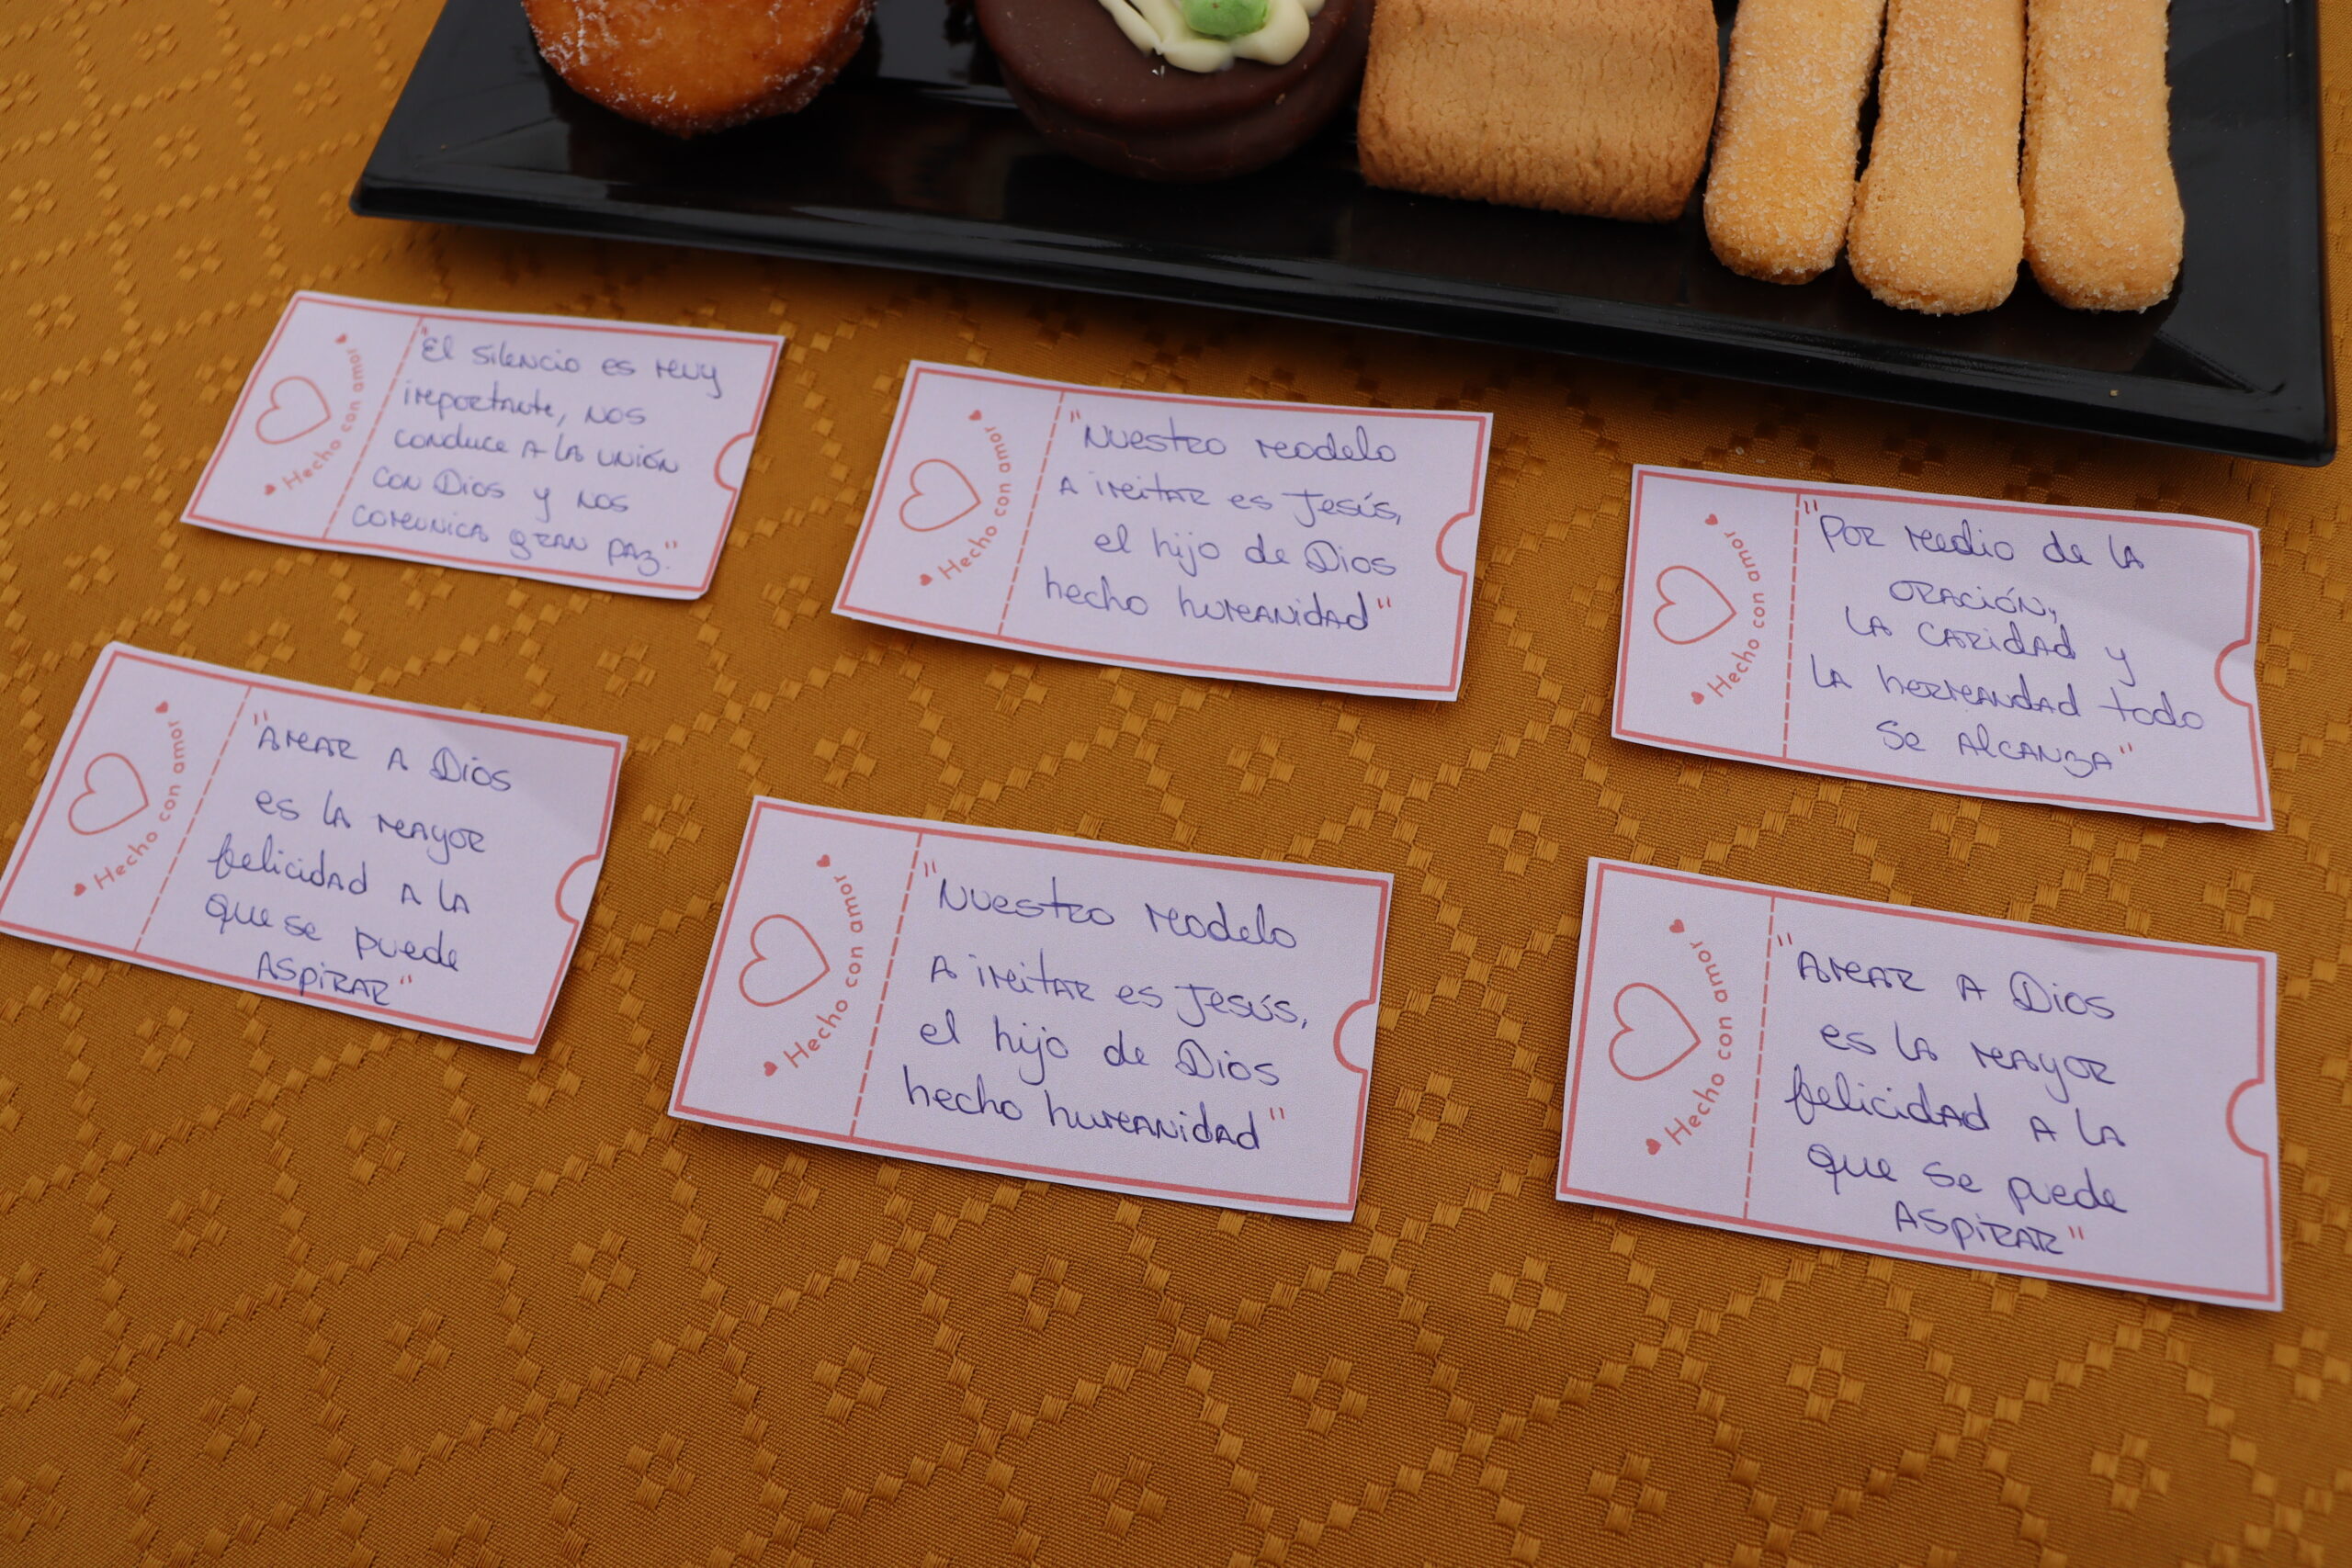 Hecho con amor
"El silencio es muy
importante, nos
conduce a la unión
con Dios y nos
comunica gran paz."
Hecho con amor
"Nuestro modelo
a imitar es Jesús,
el hijo de Dios
hecho humanidad"
Hecho con amor
"Por medio de la
oración,
la caridad y
la hermandad todo
se alcanza"
Hecho con amor
"Amar a Dios
es la mayor
felicidad a la
que se puede
aspirar"
Hecho con amor
"Nuestro modelo
a imitar es Jesús,
el hijo de Dios
hecho humanidad"
Hecho con amor
"Amar a Dios
es la mayor
felicidad a la
que se puede
aspirar"